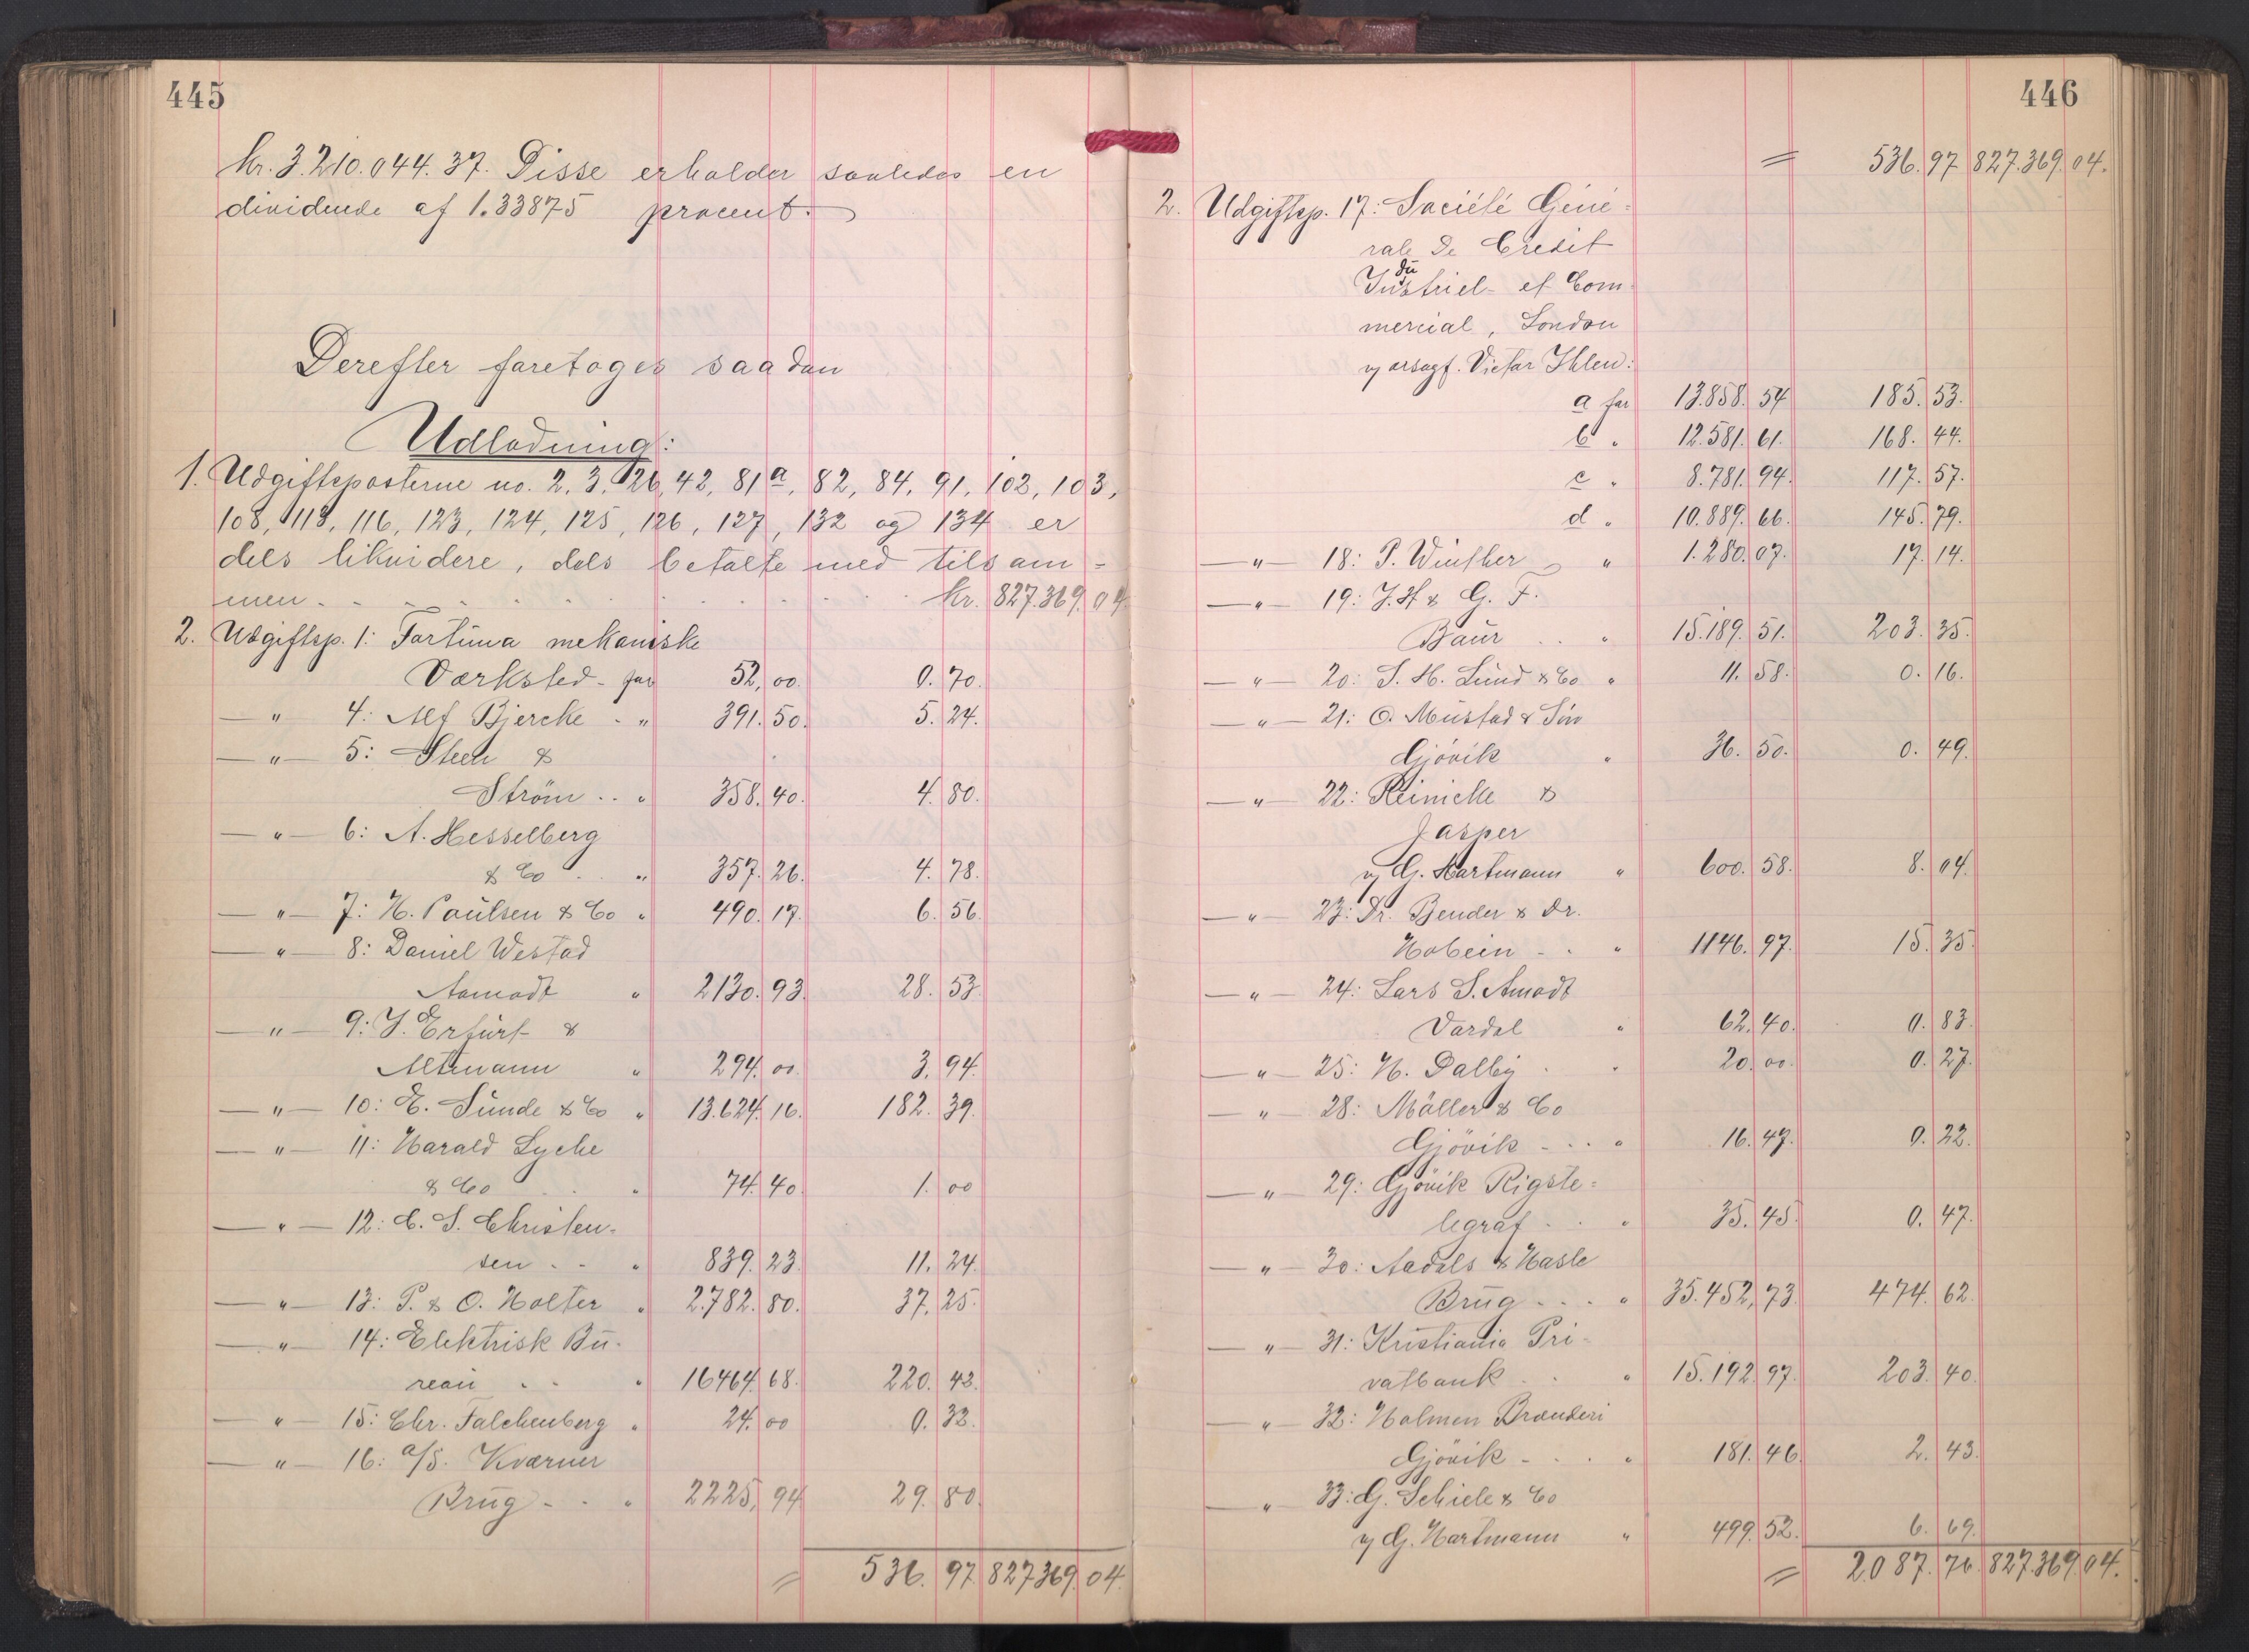 445
kr. 3.210.044.37. Disse erholder saaledes en
dividende af 1.33875 procent.
Derefter foretoges saadan
Udlodning:
1. Udgiftsposterne no. 2, 3, 26, 42, 81a, 82, 84, 91, 102, 103,
108, 113, 116, 123, 124, 125, 126, 127, 132 og 134 er
dels likvidere, dels betalte med tilsam=
men . . . . kr. 827.369.04.
2. Udgiftsp. 1: Fortuna mekaniske
Værksted - for 52,00. 0.70.
— " 4: Alf Bjercke - " 391.50. 5.24.
— " — 5: Steen &
Ström . . " 358.40. 4.80.
— " — 6: A. Hesselberg
& Co . . " 357.26. 4.78.
— " — 7: H. Paulsen & Co " 490.17. 6.56.
— " — 8: Daniel Westad
Aamodt " 2130.93. 28.53.
— " — 9: J. Erfurt &
Altmann " 294.00. 3.94.
— " — 10: E. Sunde & Co " 13.624.16. 182.39.
— " — 11: Harald Lyche
& Co . . " 74.40. 1.00
— " — 12: C. S. Christen-
sen . . " 839.23. 11.24.
— " — 13: P. & O. Holter " 2.782.80. 37.25.
— " — 14: Elektrisk Bu-
reau . . " 16464.68. 220.42.
— " — 15: Chr. Falchenberg " 24.00 0.32.
— " — 16: a/S. Kværner
Brug - . " 2225,94 29.80.
= 536.97 827369.04.
446
= 536.97 827.369.04.
2. Udgiftsp. 17: Société Géné=
rale de Credit
Industriel et Com-
mercial, London
v/ orsagf. Victor Ihlen:
a for 13.858.54 185.53.
b " 12.581.61. 168.44.
c " 8.781.94. 117.57.
d " 10.889.66. 145.79.
— " — 18: P. Winther " 1.280.07. 17.14.
— " — 19: J. H & G. F.
Baur . . " 15.189.51. 203.35.
— " — 20: S. H. Lund & Co " 11.58. 0.16.
— " — 21: O. Mustad & Sön
Gjövik " 36.50. 0.49.
— " — 22: Reinicke &
Jasper
v/ G. Hartmann " 600.58. 8.04.
— " — 23: Dr. Bender & Dr.
Hobein - . " 1146.97. 15.35.
— " — 24: Lars S. Amodt
Vardal " 62.40. 0.83.
— " — 25: H. Dalby . " 20.00. 0.27.
— " — 28: Möller & Co
Gjövik - . . " 16.47. 0.22.
— " — 29: Gjövik Rigste=
legraf . . " 35.45. 0.47.
— " — 30: Aadals & Hasle
Brug . . . " 35.452,73. 474.62.
— " — 31: Kristiania Pri=
vatbank . . " 15.192.97. 203.40.
— " — 32: Holmen Brænderi
Gjövik - . . " 181.46. 2.43.
— " 33: G. Schiele & Co
v/ G. Hartmann " 499.52. 6.69.
= 2.087.76. 827.369.04.